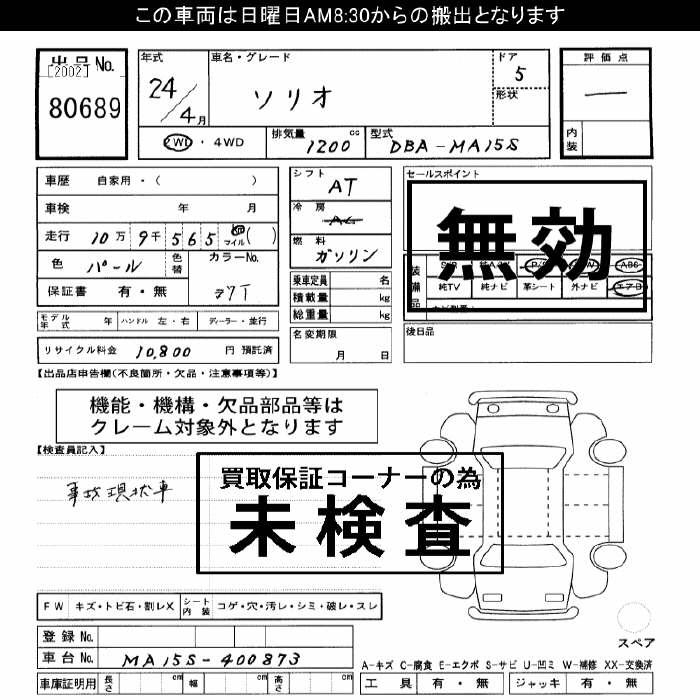 この車両は日曜日AM8:30からの搬出となります
出品No.
[2002]
80689
年式
24/4月
車名・グレード
ソリオ
ドア
5
形状
評価点
—
内装
2WD ・ 4WD
排気量
1200 cc
型式
DBA-MA15S
車歴 自家用・( )
車検 年 月
走行 10万 9千 5 6 5 マイル ( )
色 パール
色替
カラーNo.
Z7T
保証書 有・無
シフト
AT
冷房
AC
燃料
ガソリン
乗車定員 名
積載量 kg
総重量 kg
セールスポイント
無効
装備品
純TV 純ナビ 革シート 外ナビ エアB
ABS
後日品
モデル年式 年 ハンドル 左・右 ディーラー・並行
リサイクル料金 10,800 円 預託済
名変期限
月 日
【出品店申告欄(不良箇所・欠品・注意事項等)】
機能・機構・欠品部品等は
クレーム対象外となります
【検査員記入】
事故現状車
買取保証コーナーの為
未検査
FW キズ・トビ石・割レX シート内装 コゲ・穴・汚レ・シミ・破レ・スレ
登録No.
車台No. MA15S-400873
車庫証明用 長さ cm 幅 cm 高さ cm
スペア
A-キズ C-腐食 E-エクボ S-サビ U-凹ミ W-補修 XX-交換済
工具 有・無 ジャッキ 有・無